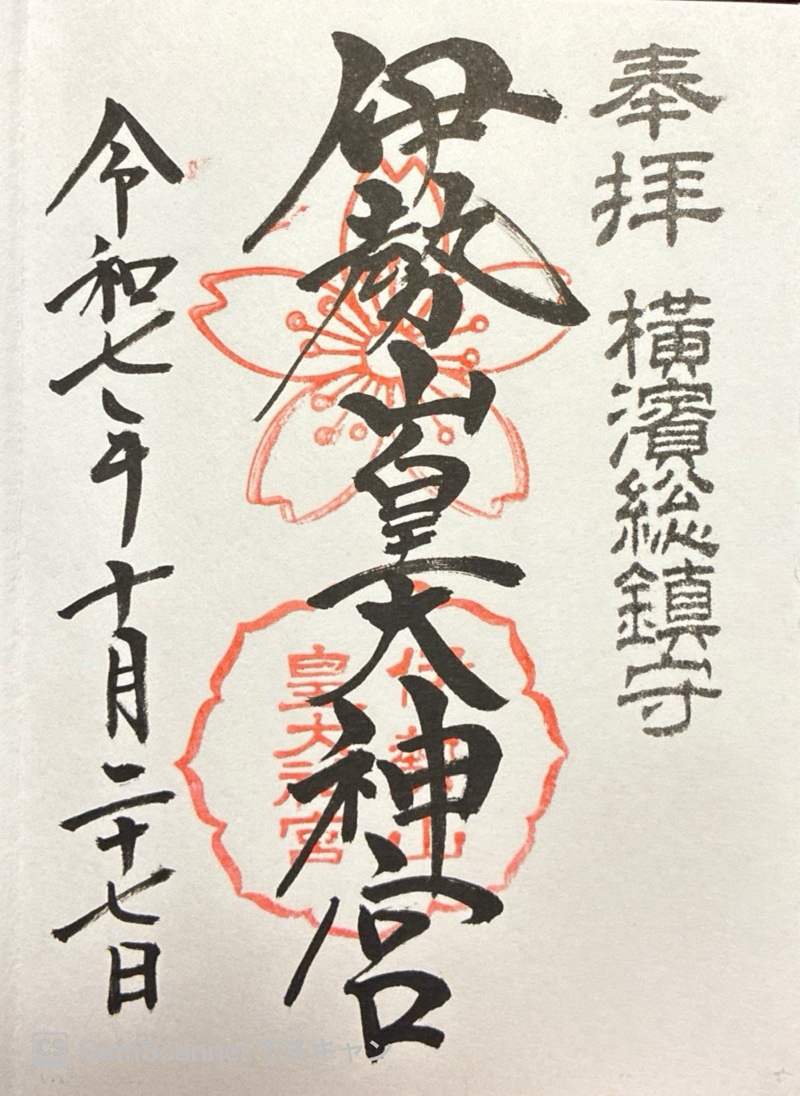 奉拝 横濱総鎮守
伊勢山皇大神宮
伊勢山
皇大神宮
令和七年十月二十七日
CS CamScanner でスキャン